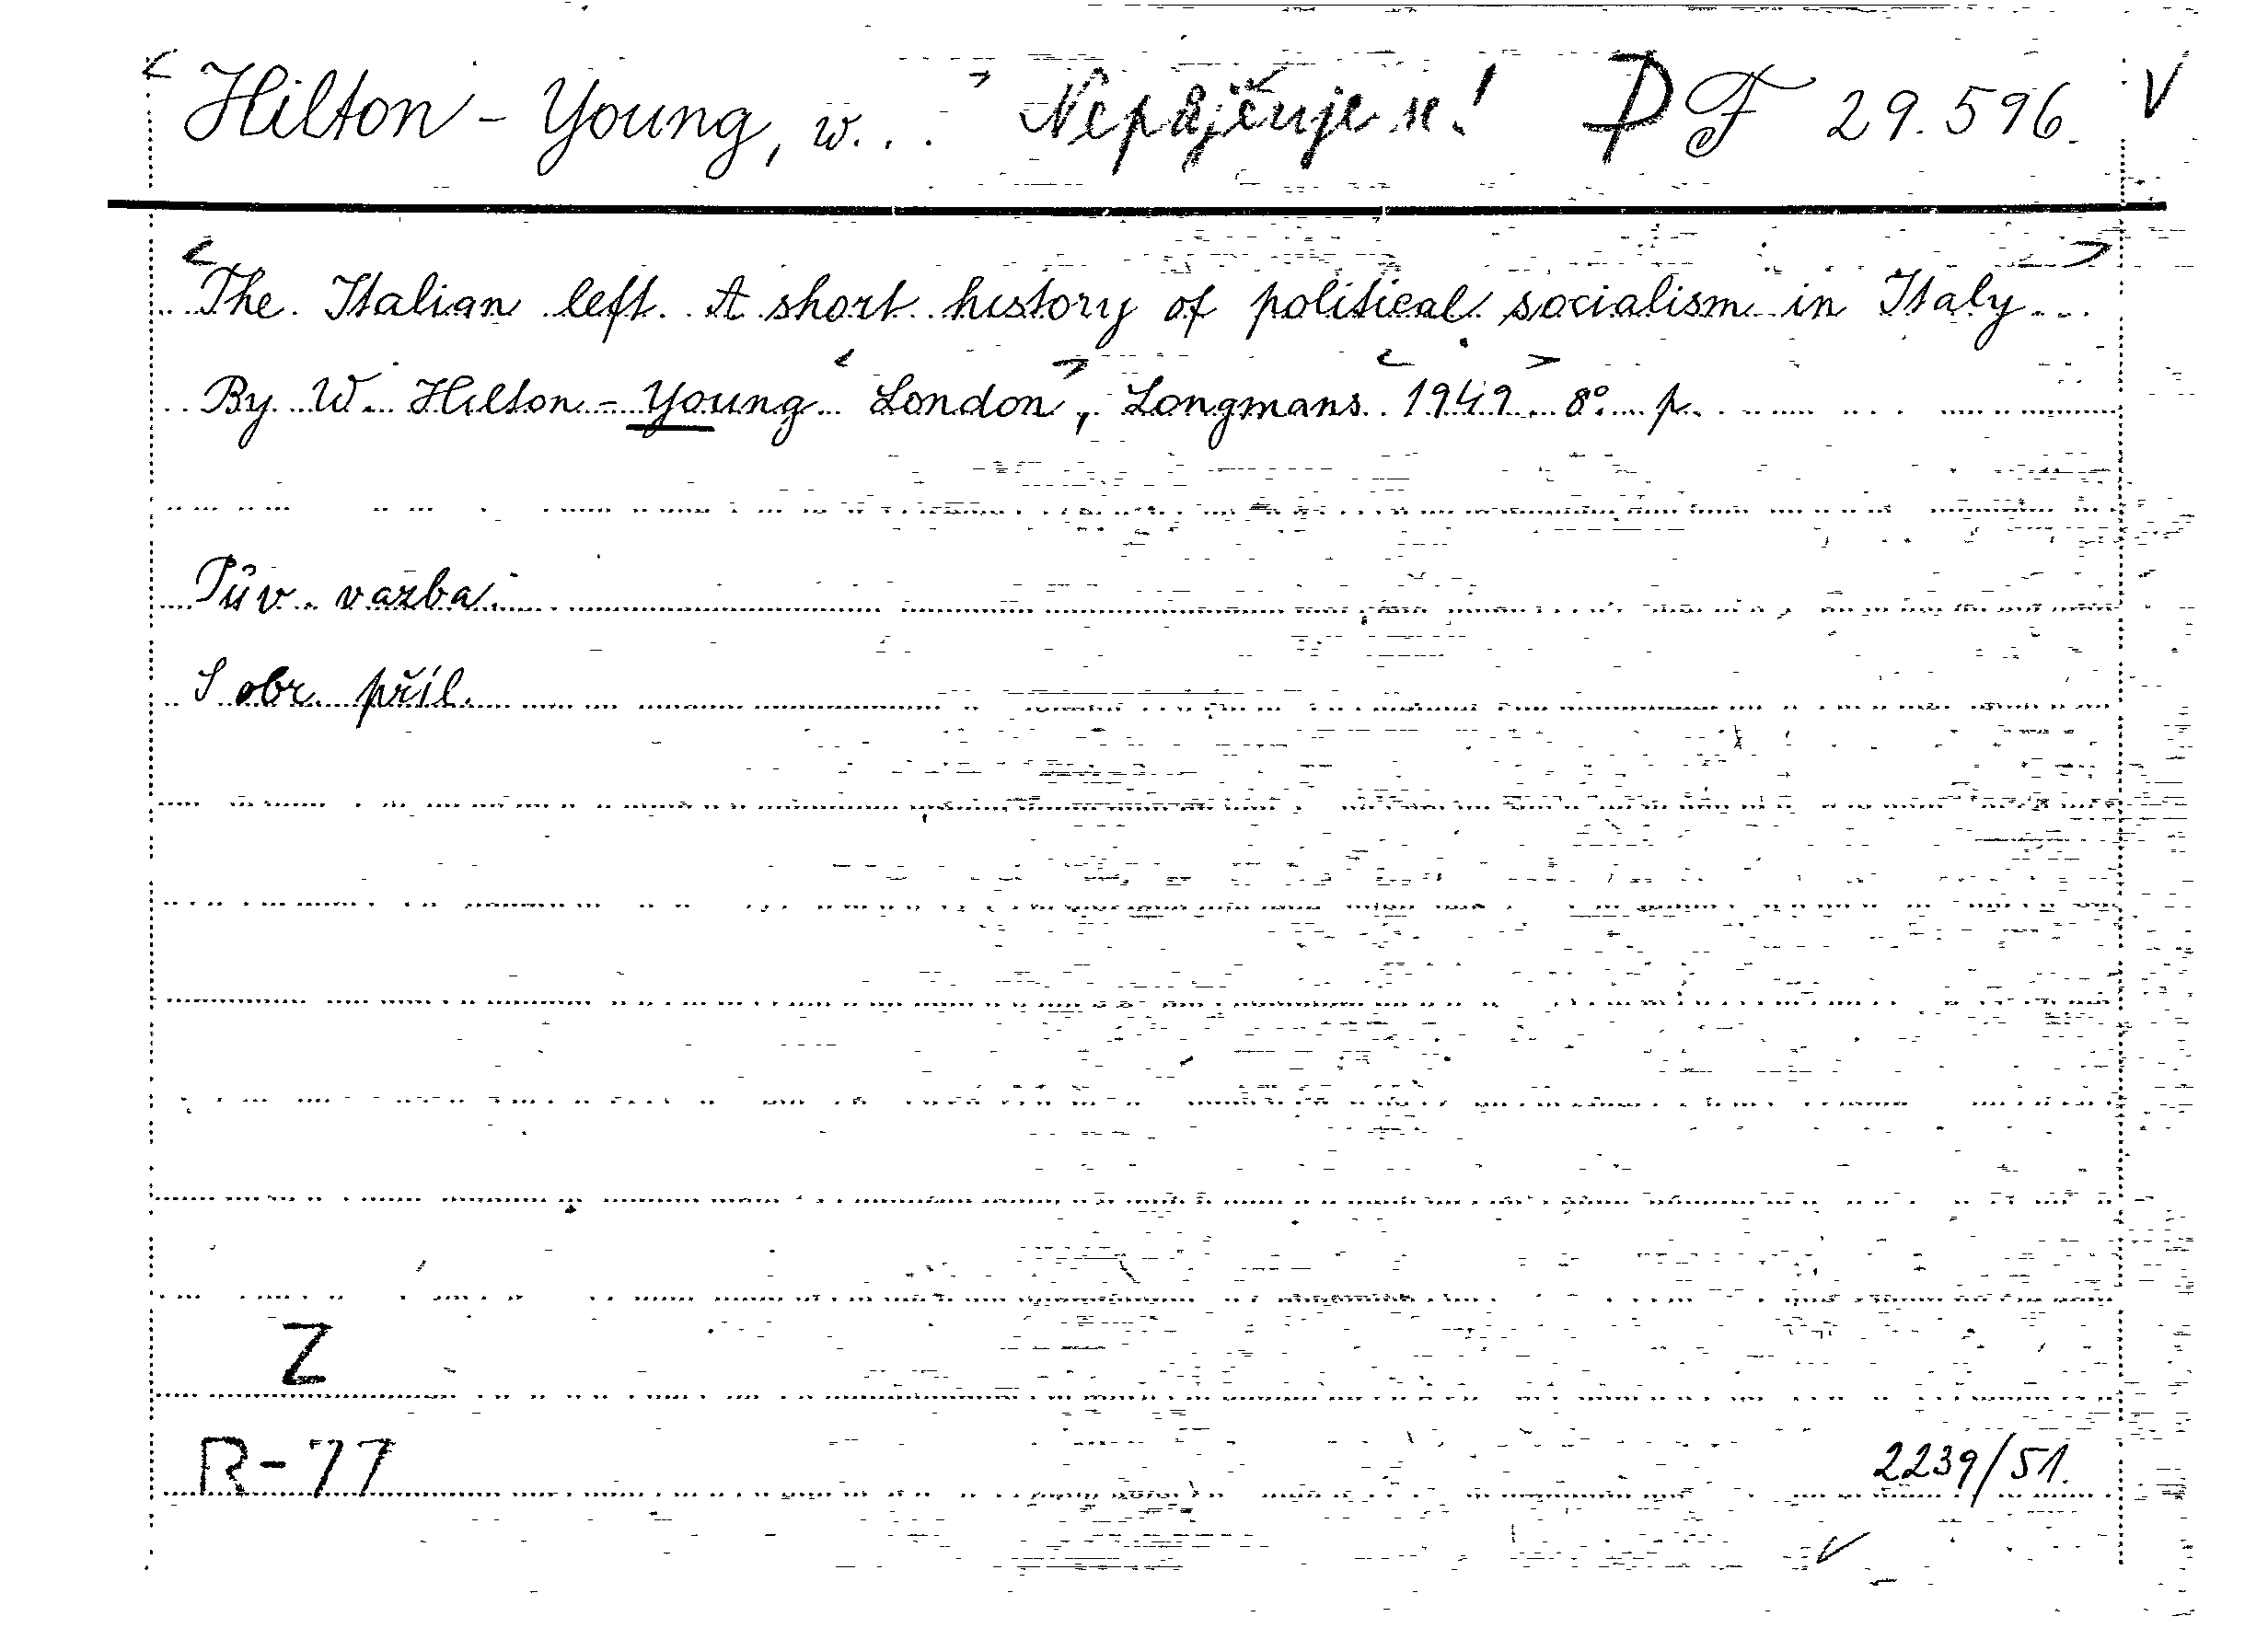 Hilton - Young, W... Nepůjčuje se! D F 29.596. V
The Italian left. A short history of political socialism in Italy...
By W. Hilton - Young London, Longmans 1949. 8°. p.
Pův. vazba.
S obr. příl.
Z
R-77
2239/51.